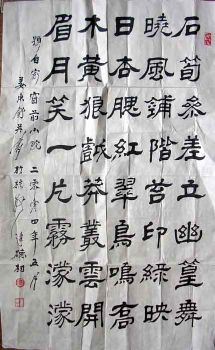 石筍參差立幽篁舞
曉風鋪階苔印綠映
日杏腮紅翠鳥鳴高
木黃狼戲莽叢雲開
眉月笑一片霧濛濛
題自窗前小院 二零零四年五月